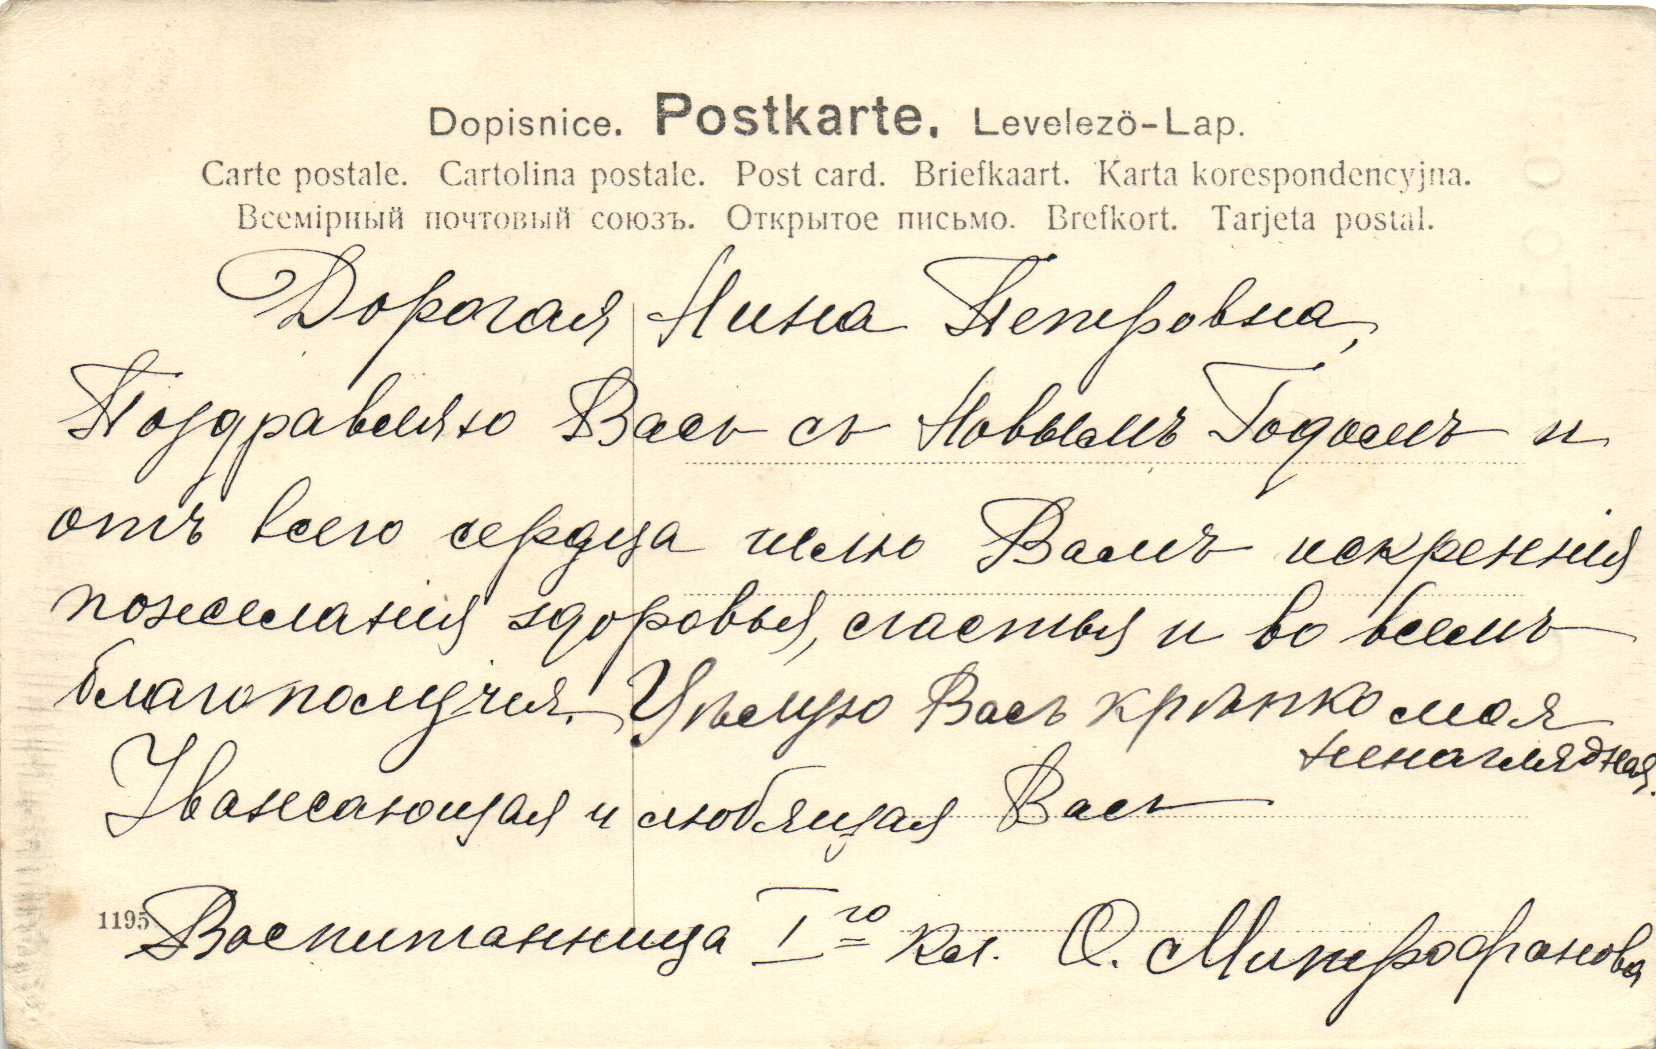 Dopisnice. Postkarte. Levelezö-Lap.
Carte postale. Cartolina postale. Post card. Briefkaart. Karta korespondencyjna.
Всемірный почтовый союзъ. Открытое письмо. Brefkort. Tarjeta postal.
Дорогая Нина Петровна,
Поздравляю Васъ съ Новымъ Годомъ и
отъ всего сердца шлю Вамъ искреннія
пожеланія здоровья, счастья и во всемъ
благополучія. Цѣлую Васъ крѣпко моя
ненаглядная.
Уважающая и любящая Васъ
1195 Воспитанница I го кл. О. Митрофанова